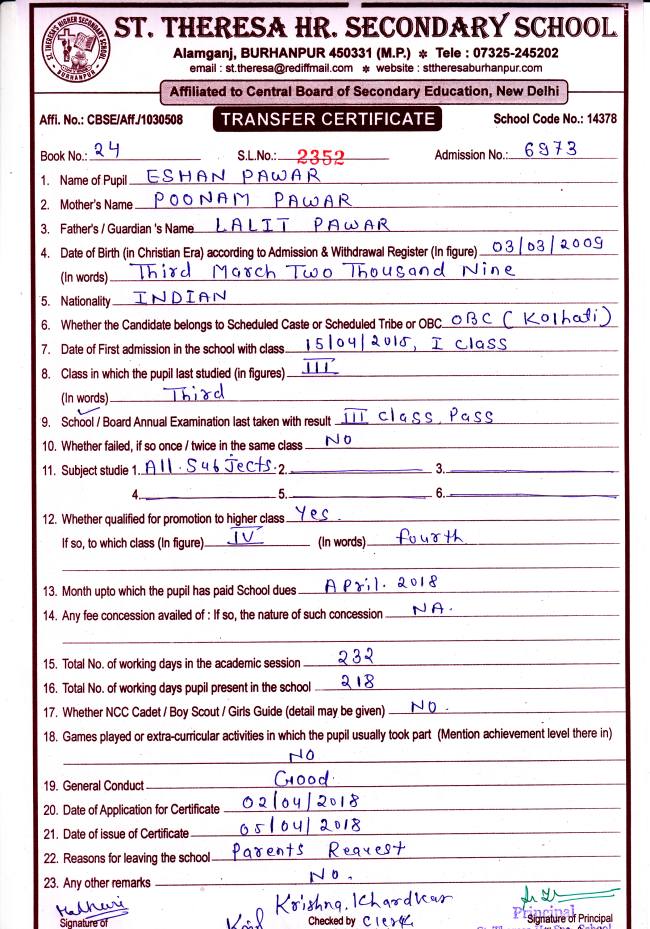 ST. THERESA'S HIGHER SECONDARY SCHOOL
BURHANPUR
ST. THERESA HR. SECONDARY SCHOOL
Alamganj, BURHANPUR 450331 (M.P.) * Tele : 07325-245202
email : st.theresa@rediffmail.com * website : sttheresaburhanpur.com
Affiliated to Central Board of Secondary Education, New Delhi
Affi. No.: CBSE/Aff./1030508 TRANSFER CERTIFICATE School Code No.: 14378
Book No.: 24 S.L.No.: 2352 Admission No.: 6973
1. Name of Pupil ESHAN PAWAR
2. Mother's Name POONAM PAWAR
3. Father's / Guardian 's Name LALIT PAWAR
4. Date of Birth (in Christian Era) according to Admission & Withdrawal Register (In figure) 03/03/2009
(In words) Third March Two Thousand Nine
5. Nationality INDIAN
6. Whether the Candidate belongs to Scheduled Caste or Scheduled Tribe or OBC OBC (Kolhati)
7. Date of First admission in the school with class 15/04/2015, I class
8. Class in which the pupil last studied (in figures) III
(In words) Third
9. School / Board Annual Examination last taken with result III class, Pass
10. Whether failed, if so once / twice in the same class NO
11. Subject studie 1. All. Subjects. 2. 3.
4. 5. 6.
12. Whether qualified for promotion to higher class Yes.
If so, to which class (In figure) IV (In words) fourth
13. Month upto which the pupil has paid School dues April. 2018
14. Any fee concession availed of : If so, the nature of such concession NA.
15. Total No. of working days in the academic session 232
16. Total No. of working days pupil present in the school 218
17. Whether NCC Cadet / Boy Scout / Girls Guide (detail may be given) NO.
18. Games played or extra-curricular activities in which the pupil usually took part (Mention achievement level there in)
NO
19. General Conduct Good.
20. Date of Application for Certificate 02/04/2018
21. Date of issue of Certificate 05/04/2018
22. Reasons for leaving the school Parents Request
23. Any other remarks No.
Krishna. Khardkar
Signature of Checked by Clerk Signature of Principal
Principal